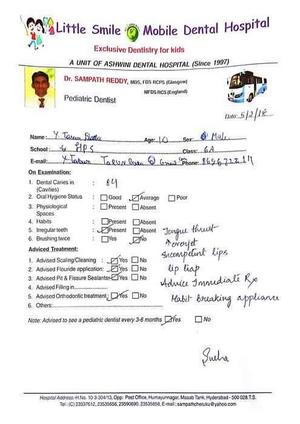 Little Smile Mobile Dental Hospital
Exclusive Dentistry for kids
A UNIT OF ASHWINI DENTAL HOSPITAL (Since 1997)
Dr. SAMPATH REDDY, MDS, FDS RCPS (Glasgow)
MFDS RCS (England)
Pediatric Dentist
Date: 5/2/18
Name: Y. Tarun Age: 10 Sex: Male
School: HPS Class: 6A
E-mail: Phone:
On Examination:
1. Dental Caries in (Cavities) :
2. Oral Hygiene Status : Good Average Poor
3. Physiological Spaces : Present Absent
4. Habits : Present Absent
5. Irregular teeth : Present Absent
6. Brushing twice : Yes No
Tongue thrust
Incompetent lips
lip trap
Advised Treatment:
1. Advised Scaling/Cleaning : Yes No
2. Advised Flouride application: Yes No
3. Advised Pit & Fissure Sealants: Yes No
4. Advised Filling
5. Advised Orthodontic treatment: Yes No
6. Others:
Advice Immediate Rx
Habit breaking appliance
Note: Advised to see a pediatric dentist every 3-6 months Yes No
Hospital Address: H.No. 10-3-304/13, Opp. Post Office, Humayunnagar, Masab Tank, Hyderabad - 500 028 T.S.